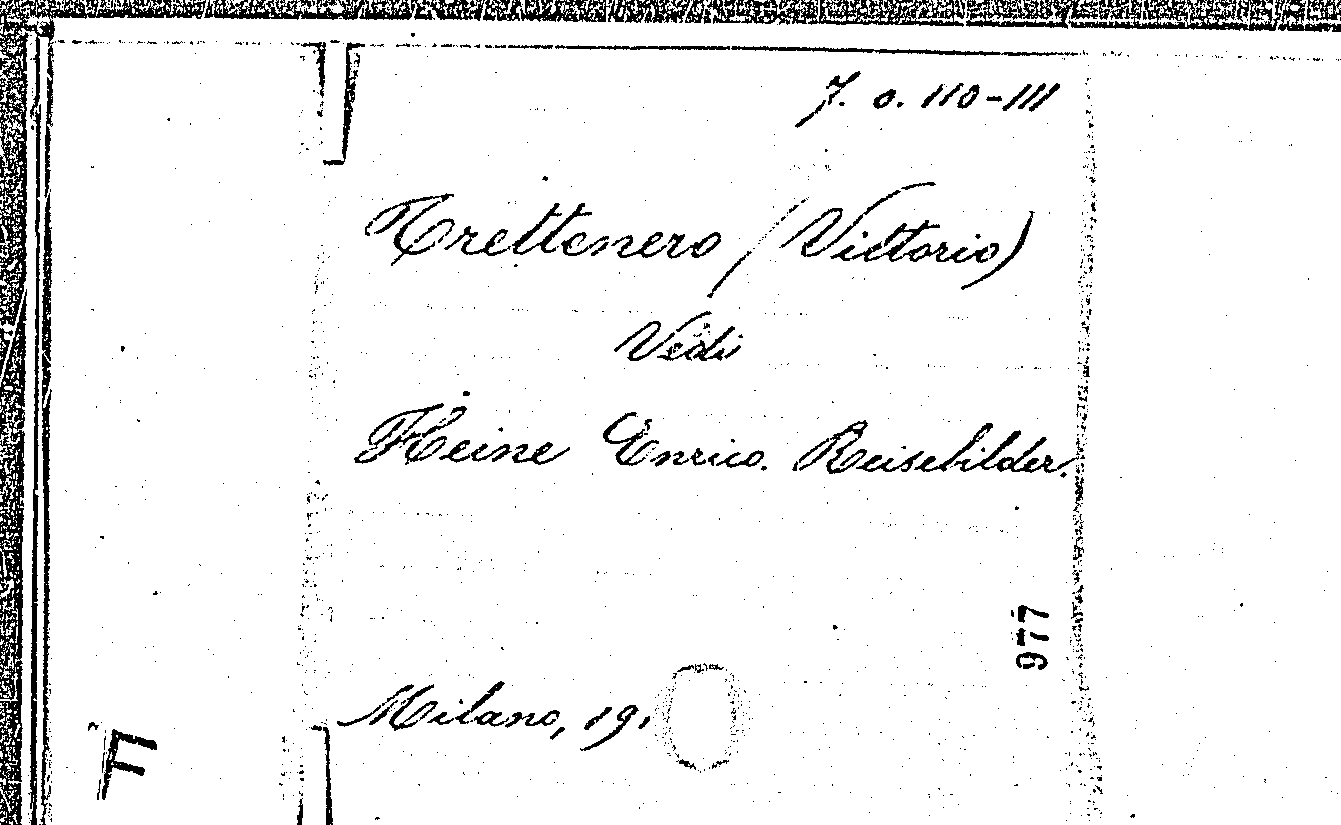 7. o. 110-111
Trettenero (Vittorio)
Vedi
Heine Enrico. Reisebilder.
977
Milano, 191
F